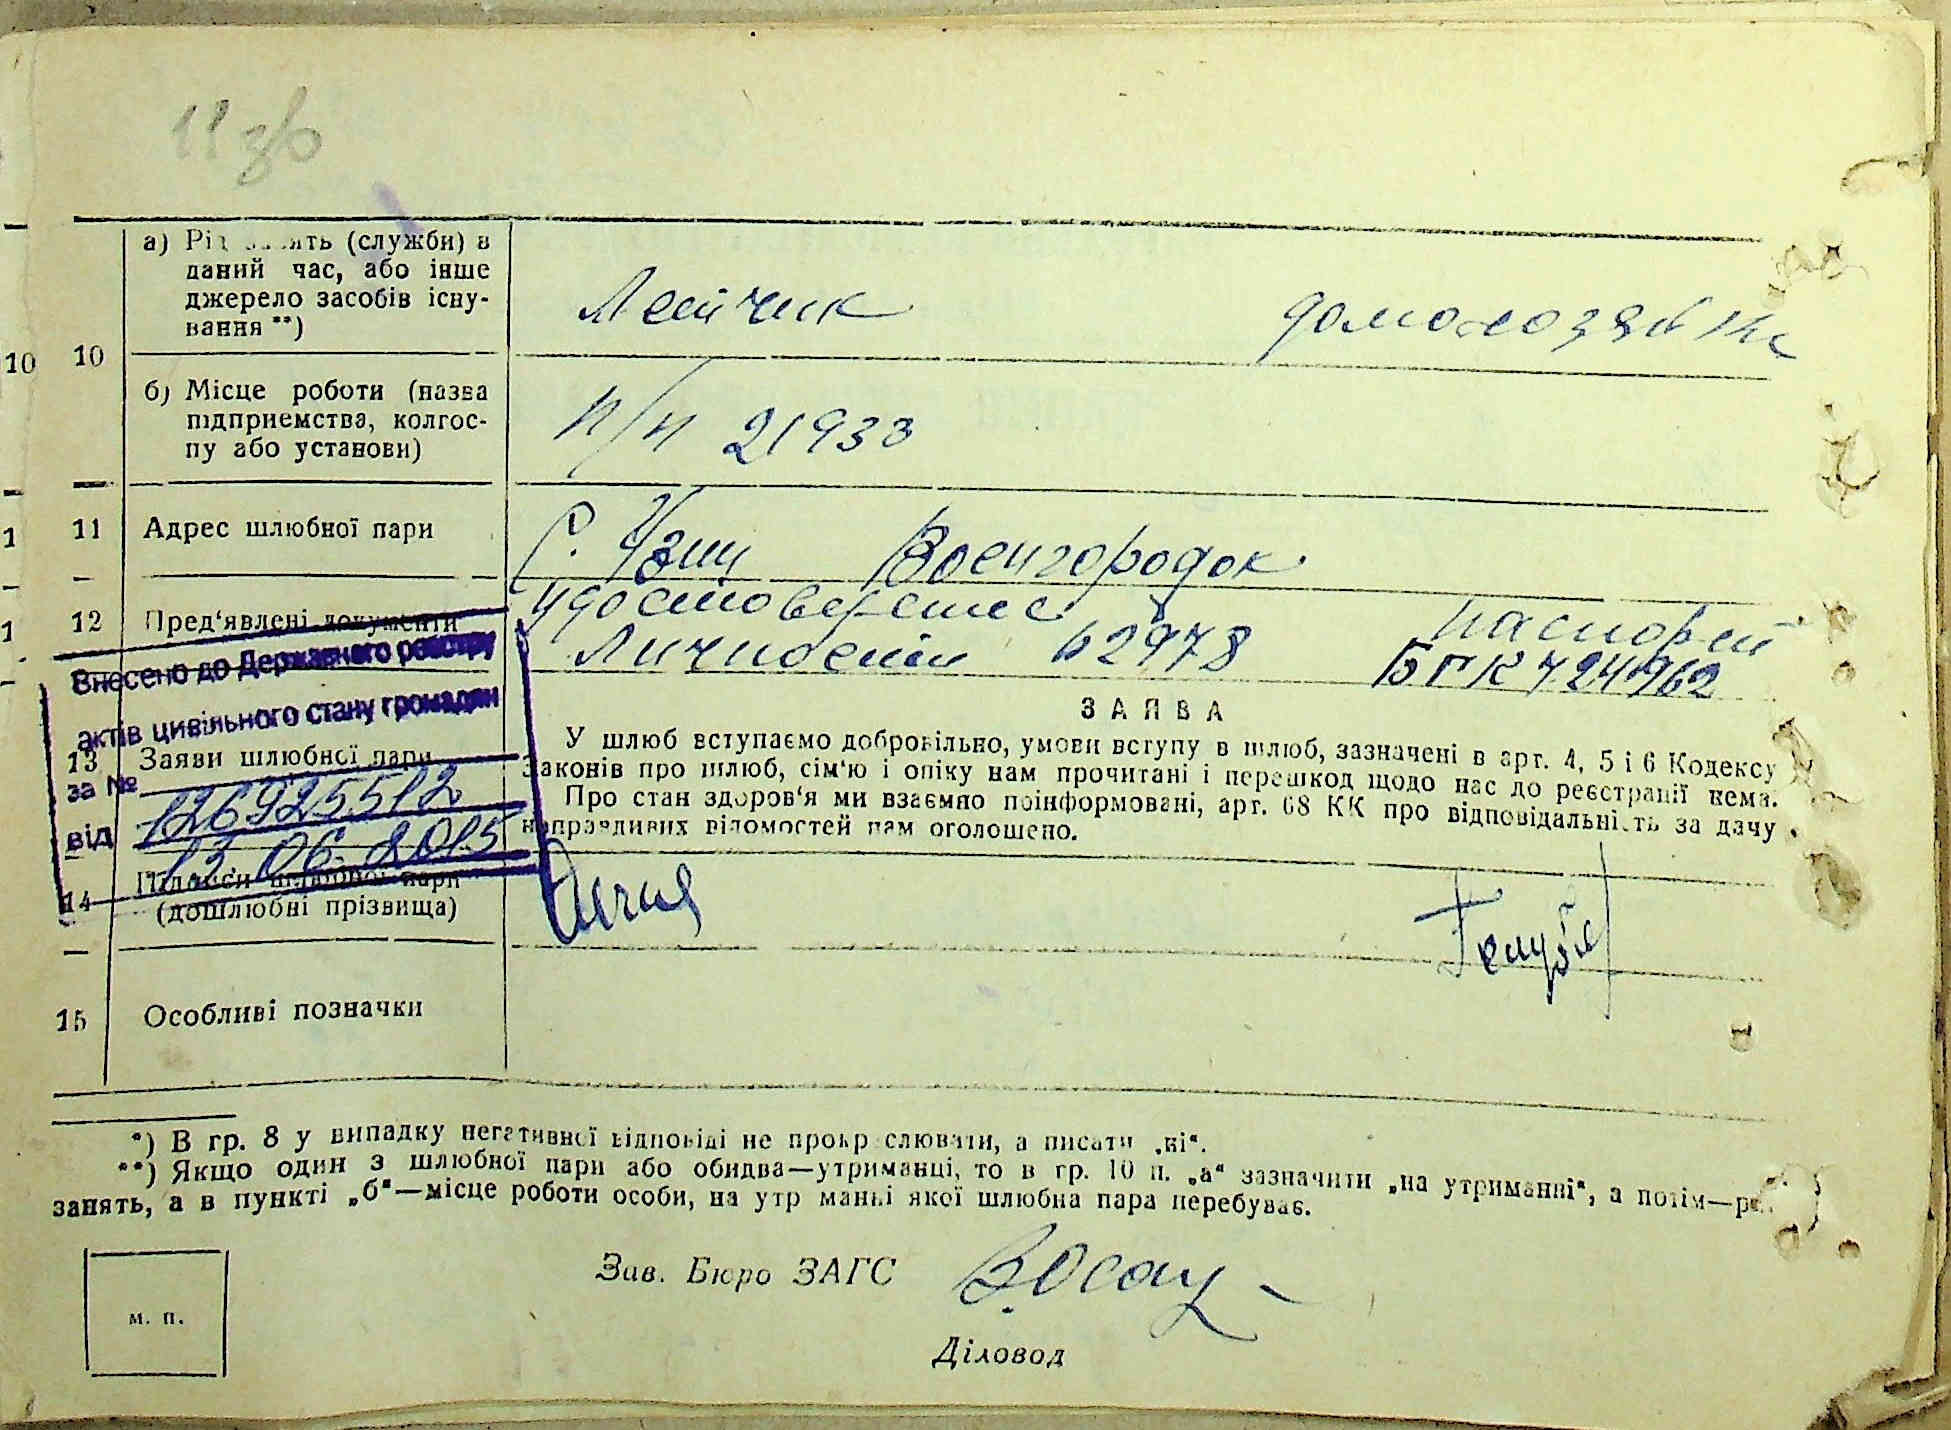 11 зв
а) Рід занять (служби) в
даний час, або інше
джерело засобів існу-
вання **)
Лётчик домохозяйка
10 10
б) Місце роботи (назва
підприємства, колгос-
пу або установи)
п/п 21933
11 Адрес шлюбної пари
с. Узин Военгородок
12 Пред'явлені документи
удостоверение паспорт
личности 62978 БГК 724962
Внесено до Державного реєстру
актів цивільного стану громадян
за №
126925512
від 13.06.2015
13 Заяви шлюбної пари
ЗАЯВА
У шлюб вступаємо добровільно, умови вступу в шлюб, зазначені в арт. 4, 5 і 6 Кодексу
законів про шлюб, сім'ю і опіку нам прочитані і перешкод щодо нас до реєстрації нема.
Про стан здоров'я ми взаємно поінформовані, арт. 68 КК про відповідальність за дачу
неправдивих відомостей нам оголошено.
14 Підписи шлюбної пари
(дошлюбні прізвища)
15 Особливі позначки
*) В гр. 8 у випадку негативної відповіді не прокреслювати, а писати „ні“.
**) Якщо один з шлюбної пари або обидва—утриманці, то в гр. 10 п. „а“ зазначити „на утриманні“, а потім—рід
занять, а в пункті „б“—місце роботи особи, на утриманні якої шлюбна пара перебуває.
Зав. Бюро ЗАГС
м. п.
Діловод